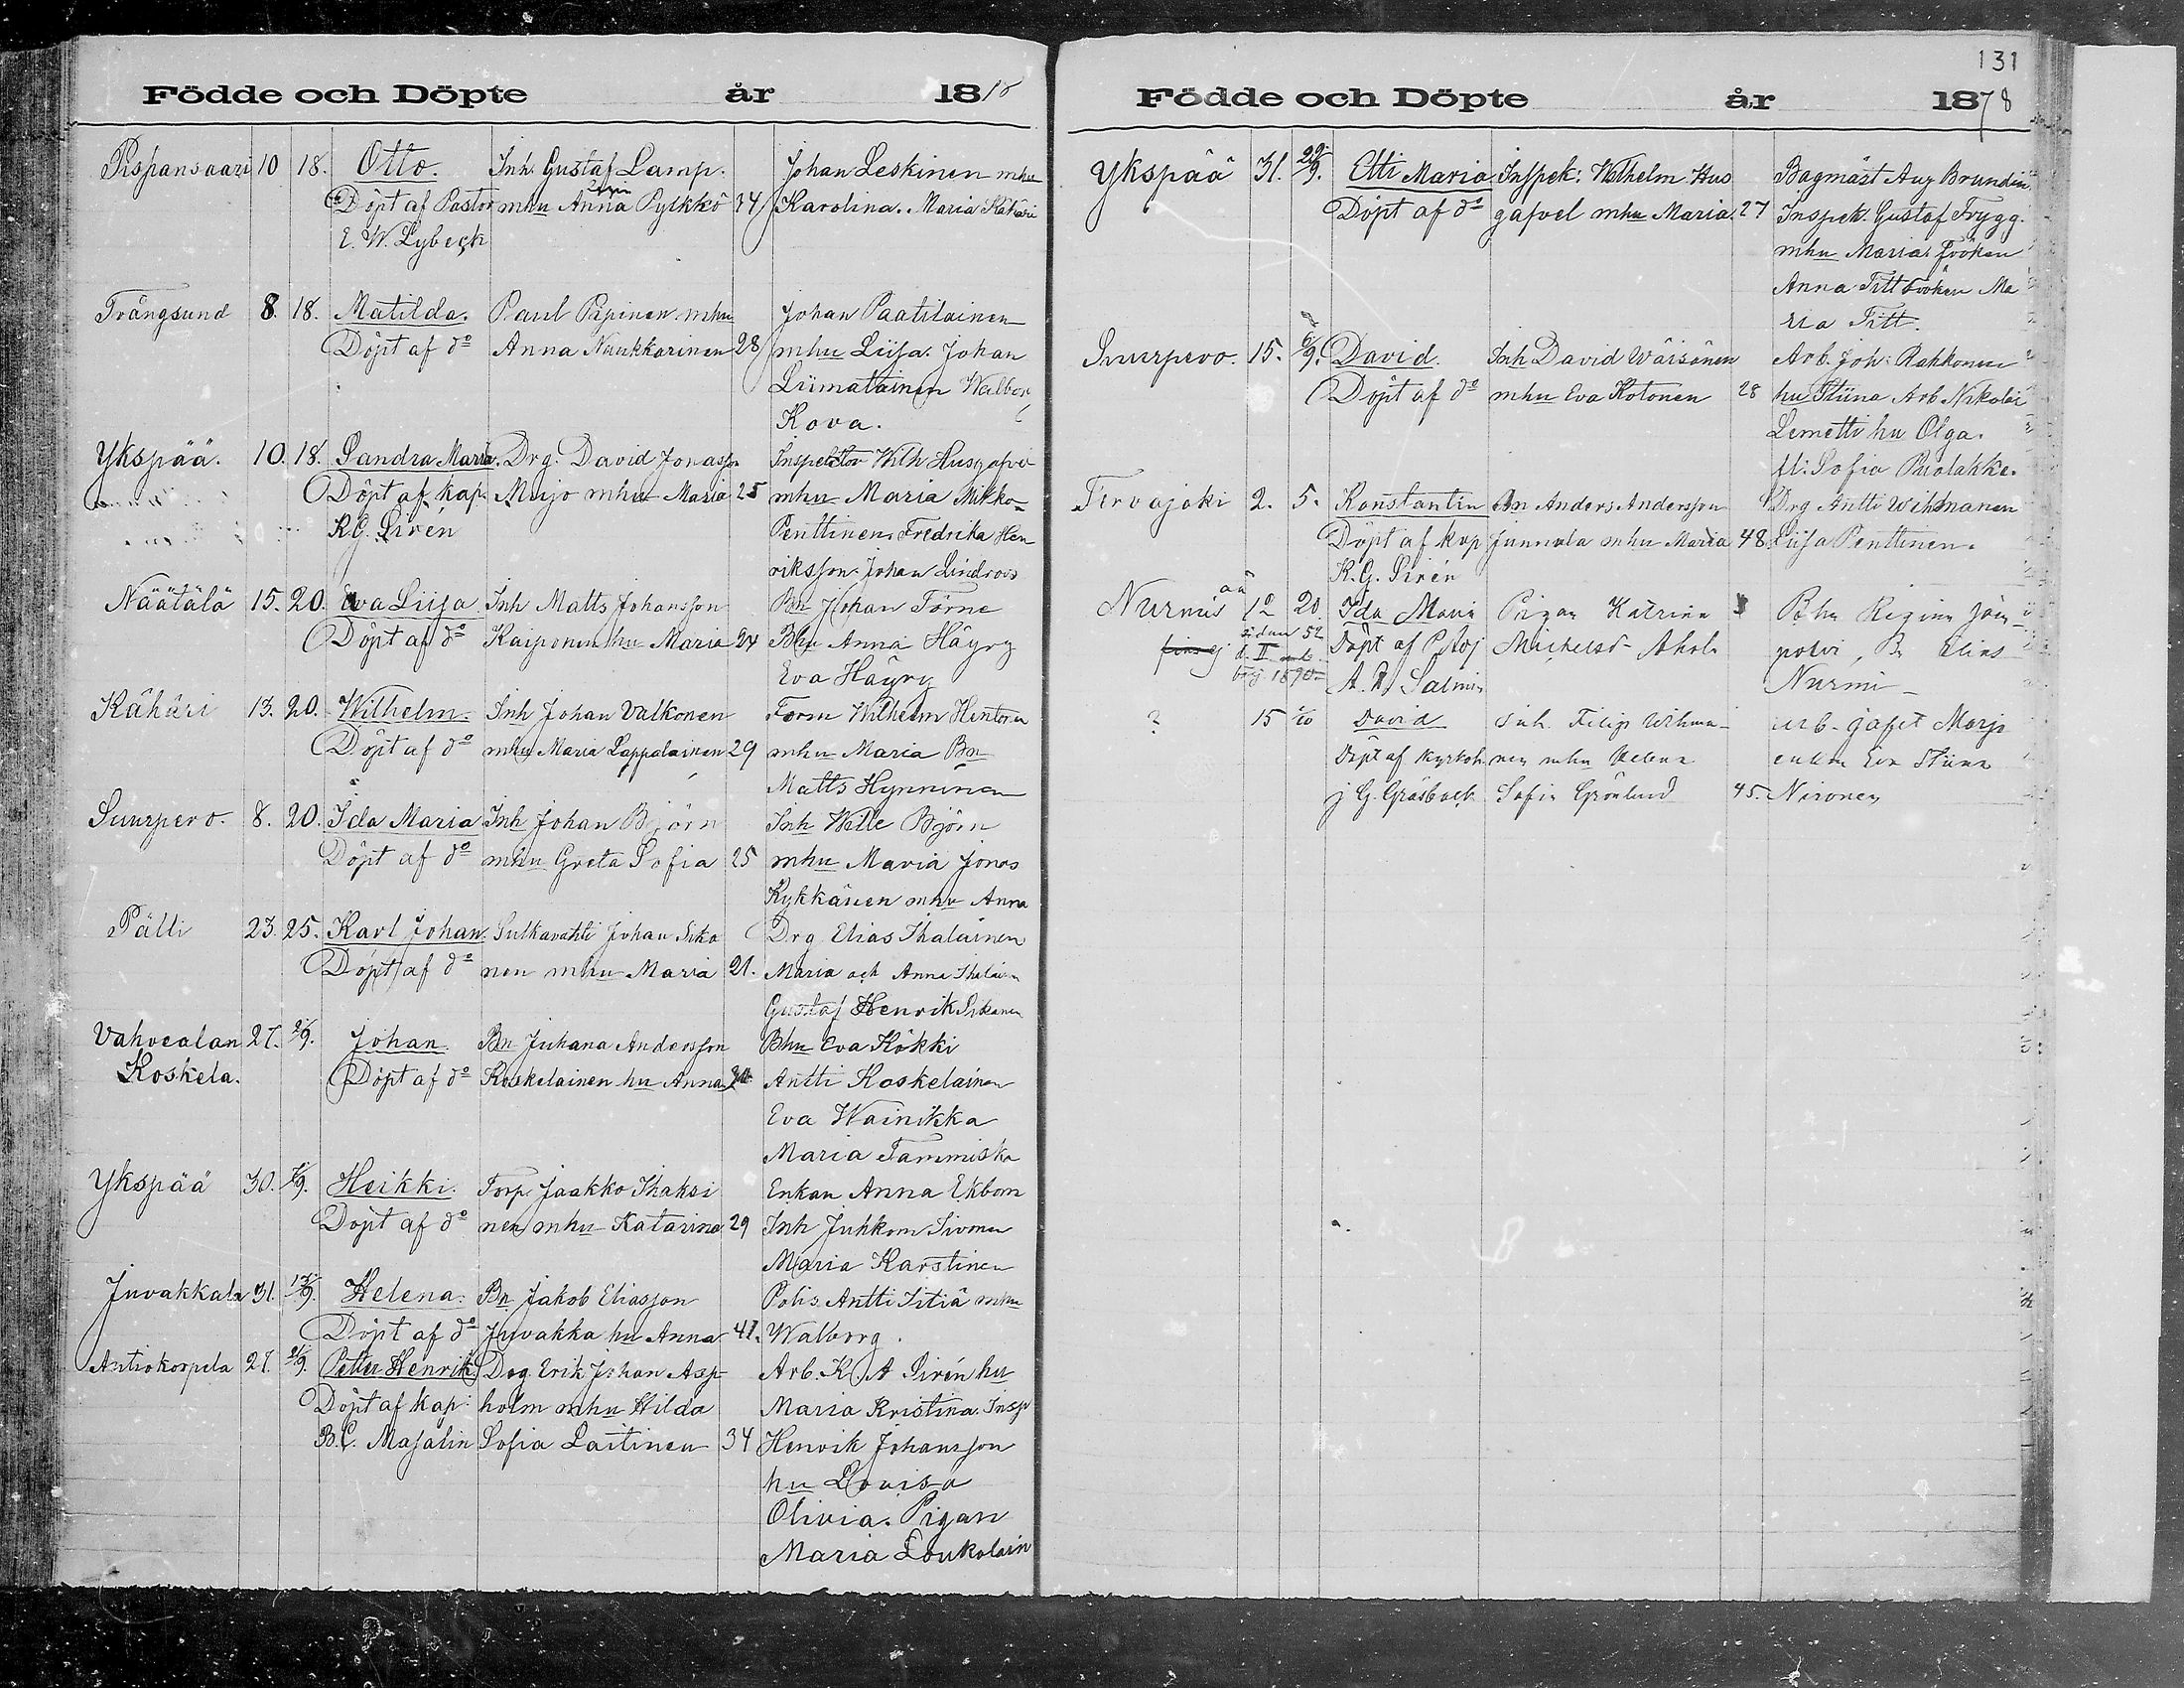 Födde och Döpte år 1878
Pispansaari 10 18. Otto. Inh. Gustaf Lamp. Johan Leskinen mhu
Döpt af Pastor mhu Anna Pylkkö 34 Karolina. Maria Kähäri
E. W. Lybeck
Trångsund 8. 18. Matilda. Paul Pipinen mhu Johan Paatilainen
Döpt af do Anna Naukkarinen 28 mhu Liisa. Johan
Liimatainen Walbor
Kova.
Ykspää. 10. 18. Sandra Maria. Drg. David Jonasson Inspektor Wilh Husgafvel
Döpt af Kap. Maijo mhu Maria 25 mhu Maria Mikko
K.G. Sirén Penttinen. Fredrika Hen
riksson. Johan Lindroos
Näätälä 15. 20. Eva Liisa Inh Matts Johansson Bn Johan Törne
Döpt af do Kaiponen hu Maria 24 Bhu Anna Häyry
Eva Häyry
Kähäri 13. 20. Wilhelm. Inh Johan Valkonen Torm Wilhelm
Döpt af do mhu Maria Lappalainen 29 mhu Maria Bn
Matts Hynninen
Suurpero. 8. 20. Ida Maria Inh Johan Björn Inh Wille Björn
Döpt af do mhu Greta Sofia 25 mhu Maria Jonas
Kykkänen mhu Anna
Pälli 23. 25. Karl Johan. Sulkavahti Johan Sika Drg Elias Ihalainen
Döpt af do nen mhu Maria 21. Maria och Anna Ihalain
Gustaf Henrik Sikanen
Vahvealan 27. 2/9. Johan. Bn Juhana Andersson Bhu Eva Kökki
Koskela. Döpt af do Koskelainen hu Anna Antti Koskelainen
Eva Wainikka
Maria Tammiska
Ykspää 30. /9. Heikki. Torp. Jaakko Ihaksi Enkan Anna Ekbom
Döpt af do nen mhu Katarina 29 Inh Juhkom Sivonen
Maria Karstinen
Juvakkala 31. /9. Helena. Bn Jakob Eliasson Polis Antti Sitiä mhu
Döpt af do Juvakka hu Anna 41. Walborg.
Antiokorpela 27. /9. Petter Henrik Drg. Erik Johan Asp Arb. K. A Sirén hu
Döpt af Kap: holm mhu Hilda Maria Kristina. Insp
B.C. Majalin Sofia Laitinen 34 Henrik Johansson
hu Lovisa
Olivia. Pigan
Maria Loukolain
131
Födde och Döpte år 1878
Ykspää 31. 29/9. Etti Maria Inspek: Wilhelm Hus Bagmäst Aug Brundin
Döpt af do gafvel mhu Maria. 27 Inspek. Gustaf Trygg.
mhu Maria Fröken
Anna Titt Fröken Ma
ria Titt.
Suurpero. 15. 6/9. David. Inh David Wäisänen Arb. Joh: Rahkonen
Döpt af do mhu Eva Kotonen 28 hu Stiina Arb Nikolai
Lemetti hu Olga.
fl: Sofia Puolakka.
Tervajoki 2. 5. Konstantin Bn Anders Andersson Drg Antti Wihmanen
Döpt af kap Junnola mhu Maria 48. Liisa Penttinen.
K. G. Sirén
Nurmis 20 Ida Maria Pigan Katrina Bhu Regina
sidan 52 Döpt af P. Adj Michelsd Ahola polvi, Bn Elias
d. II
1890 A. W. Salmin Nurmi
? 15 /10 David inh. Filip Wihma arb. Jafet Marja
Döpt af Kyrkoh nen mhu Helena enkan Eva Stiina
J G. Gråsbäck Sofia Grönlund 45. Nironen